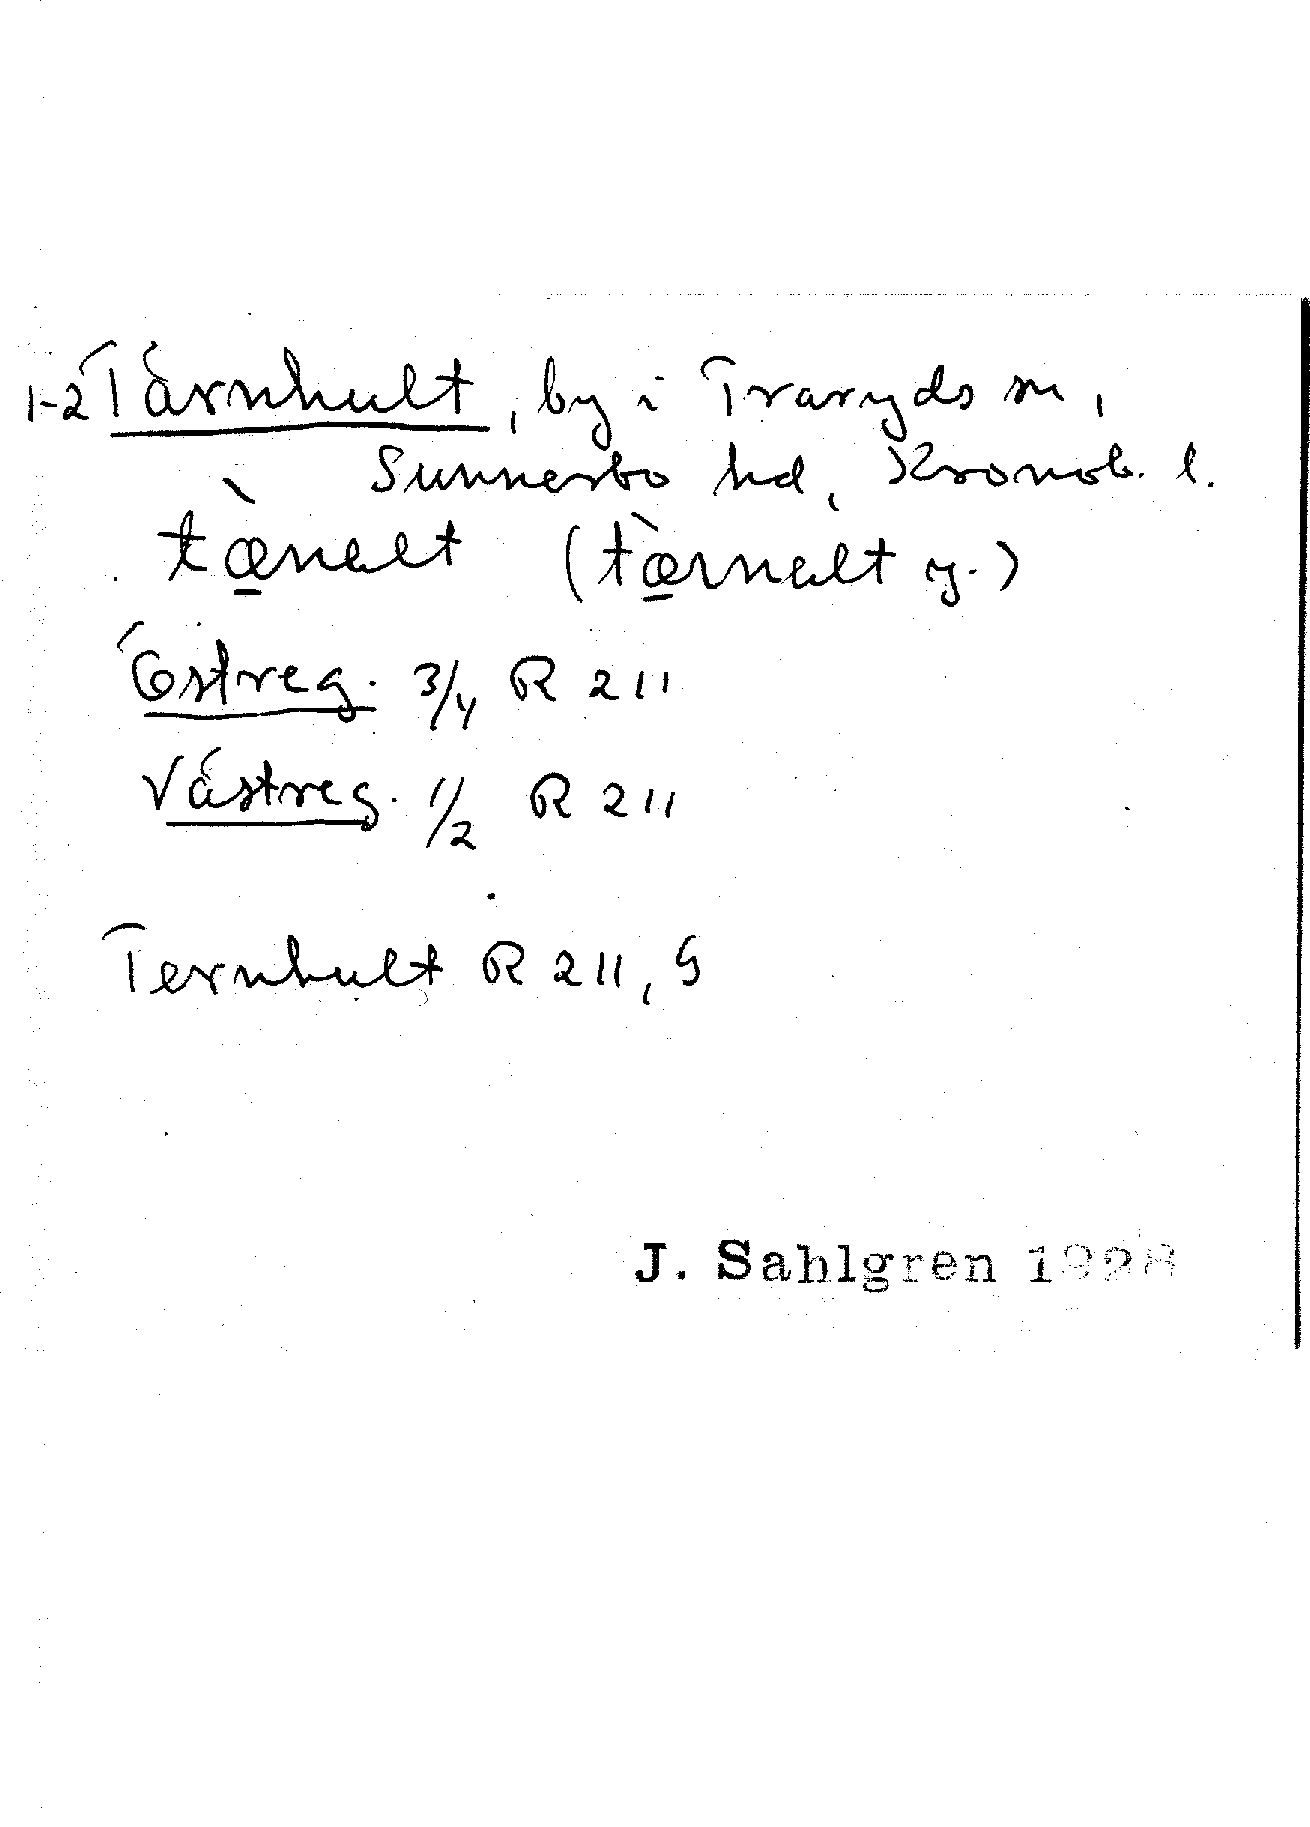 1-2 Tärnhult, by i Traryds sn,
Sunnerbo hd, Kronob. l.
tæ̀nelt (tæ̀rnelt y.)
Östreg. 3/4 R 211
Västreg. 1/2 R 211
Ternhult R 211, G
J. Sahlgren 1928